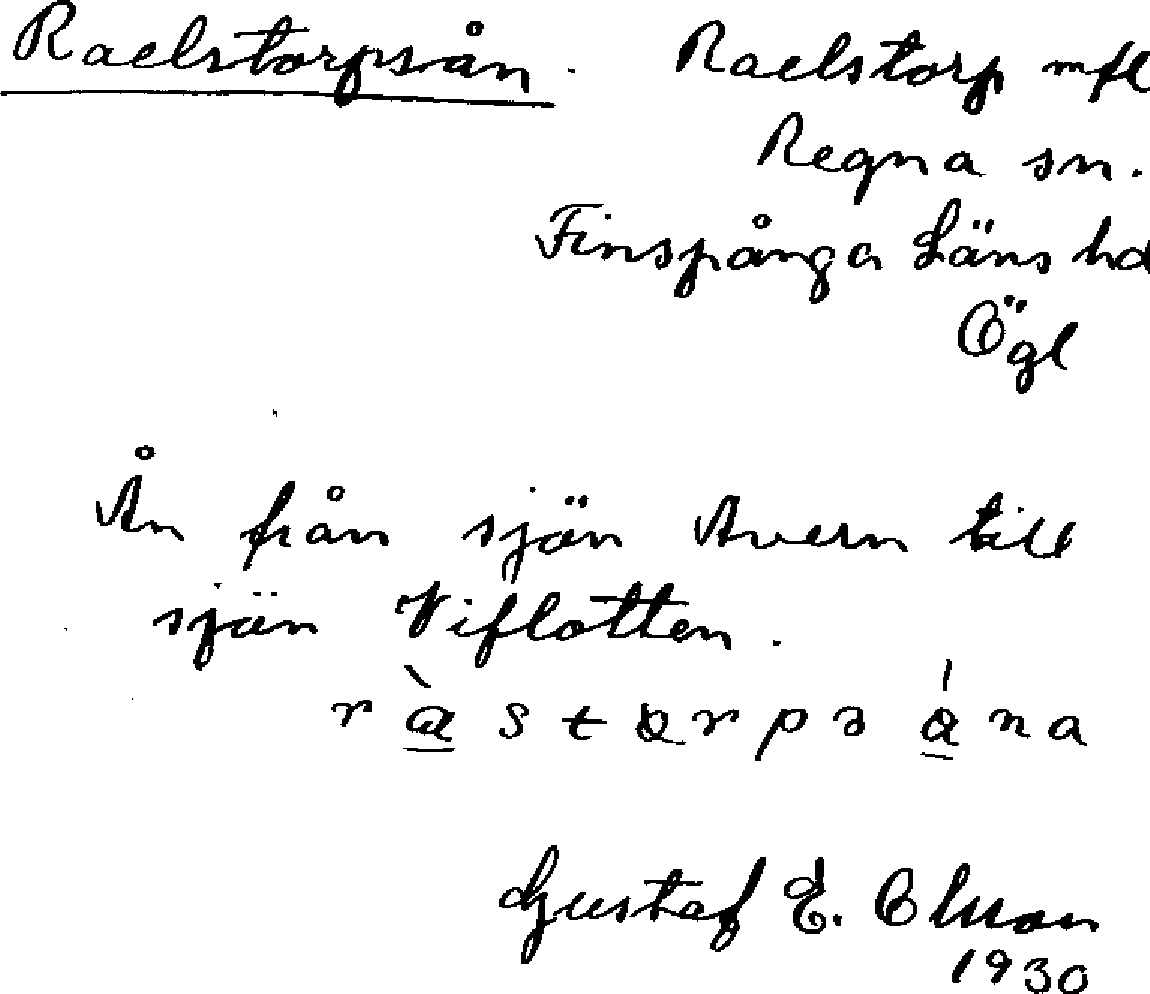 Raelstorpsån. Raelstorp mfl
Regna sn.
Finspånga Läns hd
Ögl
Ån från sjön Avern till
sjön Viflotten.
Gustaf E.
1930